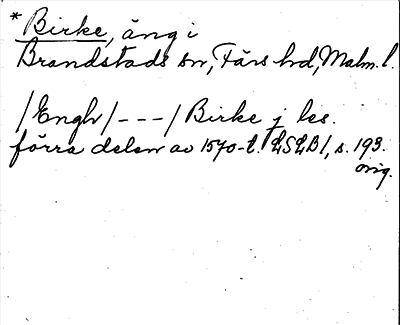 *Birke, äng i
Brandstads sn, Färs hd, Malm. l.
/Engh/---/ Birke j les.
förra delen av 1570-t. LSLB1, s. 193.
orig.